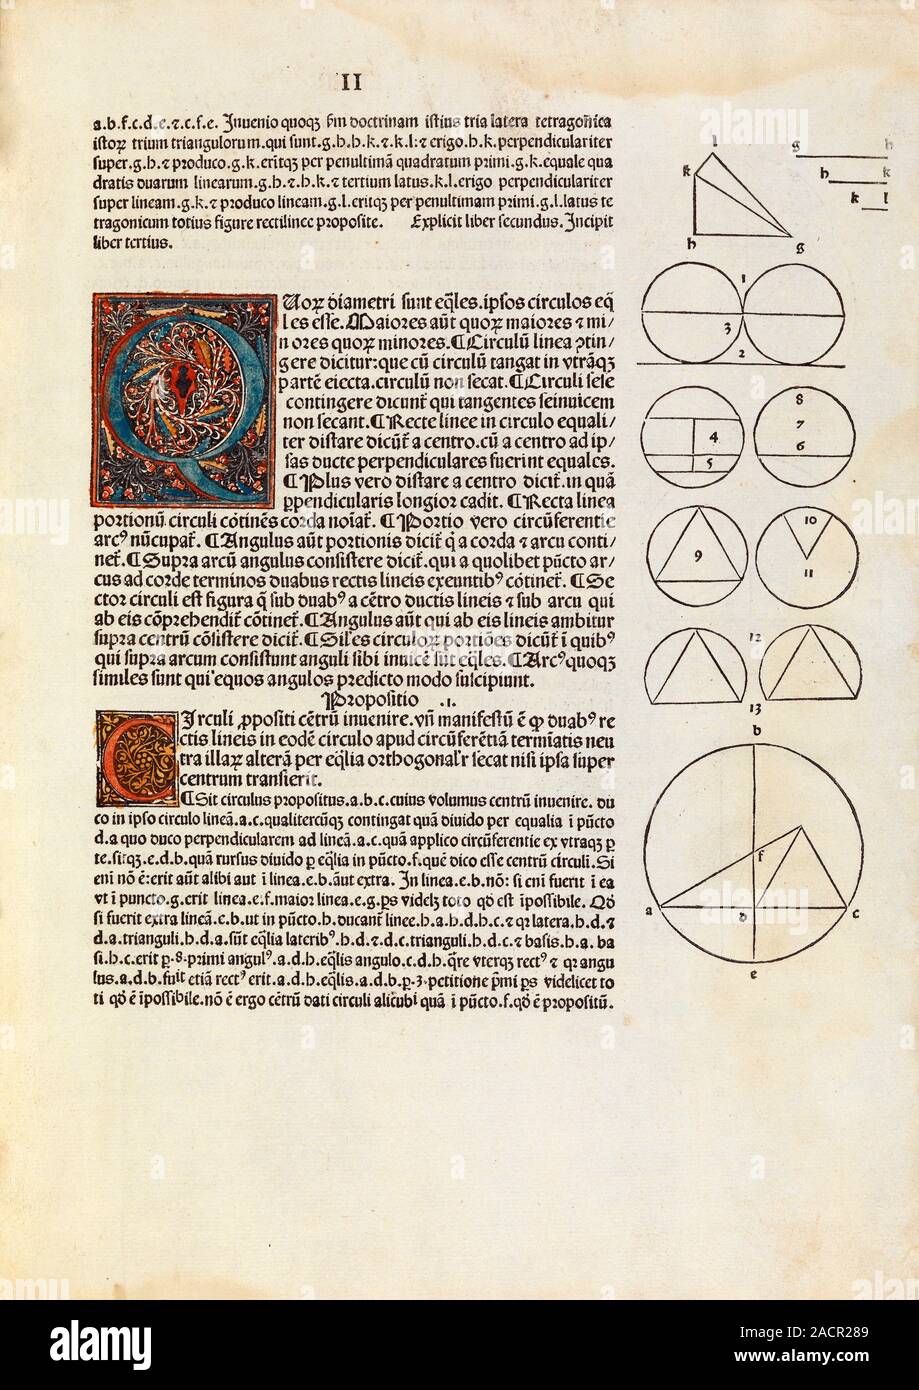 II
a.b.f.c.d.e.⁊.c.f.e. Inuenio quoqꝫ ẜm doctrinam istius tria latera tetragonica
istoꝝ trium triangulorum.qui sunt.g.h.h.k.⁊.k.l:⁊ erigo.h.k.perpendiculariter
super.g.h.⁊ produco.g.k.eritqꝫ per penultimā quadratum primi.g.k.equale qua
dratis duarum linearum.g.h.⁊.h.k.⁊ tertium latus.k.l.erigo perpendiculariter
super lineam.g.k.⁊ produco lineam.g.l.eritqꝫ per penultimam primi.g.l.latus te
tragonicum totius figure rectilinee proposite. Explicit liber secundus. Incipit
liber tertius.
QUoꝝ diametri sunt eq̄les.ipsos circulos eq̄
les esse.Maiores aūt quoꝝ maiores ⁊ mi/
nores quoꝝ minores.¶Circulū linea ꝯtin/
gere dicitur:que cū circulū tangat in vtrāqꝫ
partē eiecta.circulū non secat.¶Circuli sese
contingere dicunt̄ qui tangentes seinuicem
non secant.¶Recte linee in circulo equali/
ter distare dicūt̄ a centro.cū a centro ad ip/
sas ducte perpendiculares fuerint equales.
¶Plus vero distare a centro dicit̄.in quā
ꝑpendicularis longior cadit. ¶Recta linea
portionū circuli cōtinēs corda noīat̄. ¶Portio vero circūferentie
arcꝰ nūcupat̄. ¶Angulus aūt portionis dicit̄ q̄ a corda ⁊ arcu conti/
net̄.¶Supra arcū angulus consistere dicit̄.qui a quolibet pūcto ar/
cus ad corde terminos duabus rectis lineis exeuntibꝰ cōtinet̄. ¶Se
ctor circuli est figura q̄ sub duabꝰ a cētro ductis lineis ⁊ sub arcu qui
ab eis cōprehendit̄ cōtinet̄. ¶Angulus aūt qui ab eis lineis ambitur
supra centrū cōsistere dicit̄.¶Siles circuloꝝ portiōes dicūt̄ ī quibꝰ
qui supra arcum consistunt anguli sibi inuicē sūt eq̄les.¶Arcꝰ quoqꝫ
similes sunt qui equos angulos predicto modo suscipiunt.
Propositio .1.
CIrculi ꝓpositi cētrū inuenire. vñ manifestū ē ꝙ duabꝰ re
ctis lineis in eodē circulo apud circūferētiā termīatis neu
tra illaꝝ alterā per eq̄lia orthogonal'r secat nisi ipsa super
centrum transierit.
¶Sit circulus propositus.a.b.c.cuius volumus centrū inuenire. du
co in ipso circulo lineā.a.c.qualitercūqꝫ contingat quā diuido per equalia ī pūcto
d.a quo duco perpendicularem ad lineā.a.c.quā applico circūferentie ex vtraqꝫ ꝑ
te.sitqꝫ.e.d.b.quā rursus diuido ꝑ eq̄lia in pūcto.f.quē dico esse centrū circuli. Si
eni nō ē:erit aūt alibi aut ī linea.e.b.aut extra. In linea.e.b.nō: si eni fuerit ī ea
vt ī puncto.g.erit linea.e.f.maior linea.e.g.ꝑs videlꝫ toto qđ est īpossibile. Qđ
si fuerit extra lineā.e.b.ut in pūcto.h.ducant̄ linee.h.a.h.d.h.c.⁊ qꝛ latera.h.d.⁊
d.a.trianguli.h.d.a.sūt eq̄lia lateribꝰ.h.d.⁊.d.c.trianguli.h.d.c.⁊ basis.h.a. ba
si.h.c.erit ꝑ.8.primi angulꝰ.a.d.h.eq̄lis angulo.c.d.h.q̄re vterqꝫ rectꝰ ⁊ qꝛ angu
lus.a.d.b.fuit etiā rectꝰ erit.a.d.h.eq̄lis.a.d.b.ꝑ.3.petitione p̄mi ꝑs videlicet to
ti qđ ē īpossibile.nō ē ergo cētrū dati circuli alicubi quā ī pūcto.f.qđ ē propositū.
l
k
h
g
g h
h k
k l
1
3
2
4
5
8
7
6
9
10
11
12
13
b
f
a
d
c
e
alamy
Image ID: 2ACR289
www.alamy.com